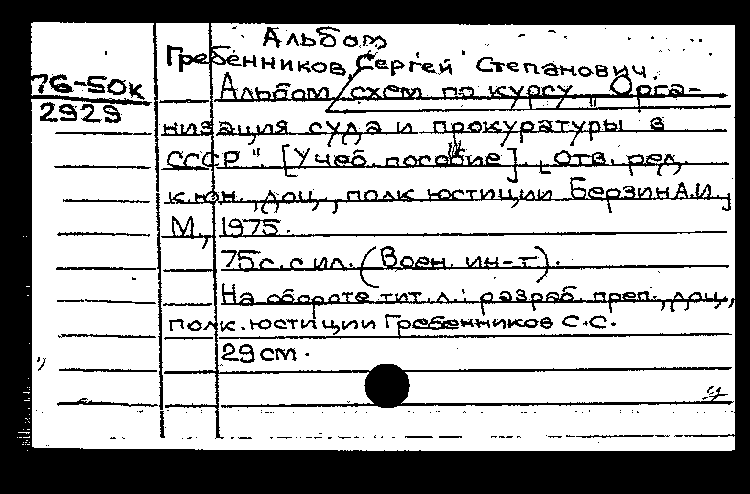 Альбом
Гребенников, Сергей Степанович.
76-50к
2929
Альбом схем по курсу „Орга-
низация суда и прокуратуры в
СССР". [Учеб. пособие]. [Отв. ред.
к.юн., доц., полк юстиции Берзин А.И.]
М., 1975.
75 с. с ил. (Воен. ин-т).
На обороте тит. л.: разраб. преп., доц.,
полк. юстиции Гребенников С.С.
29 см.